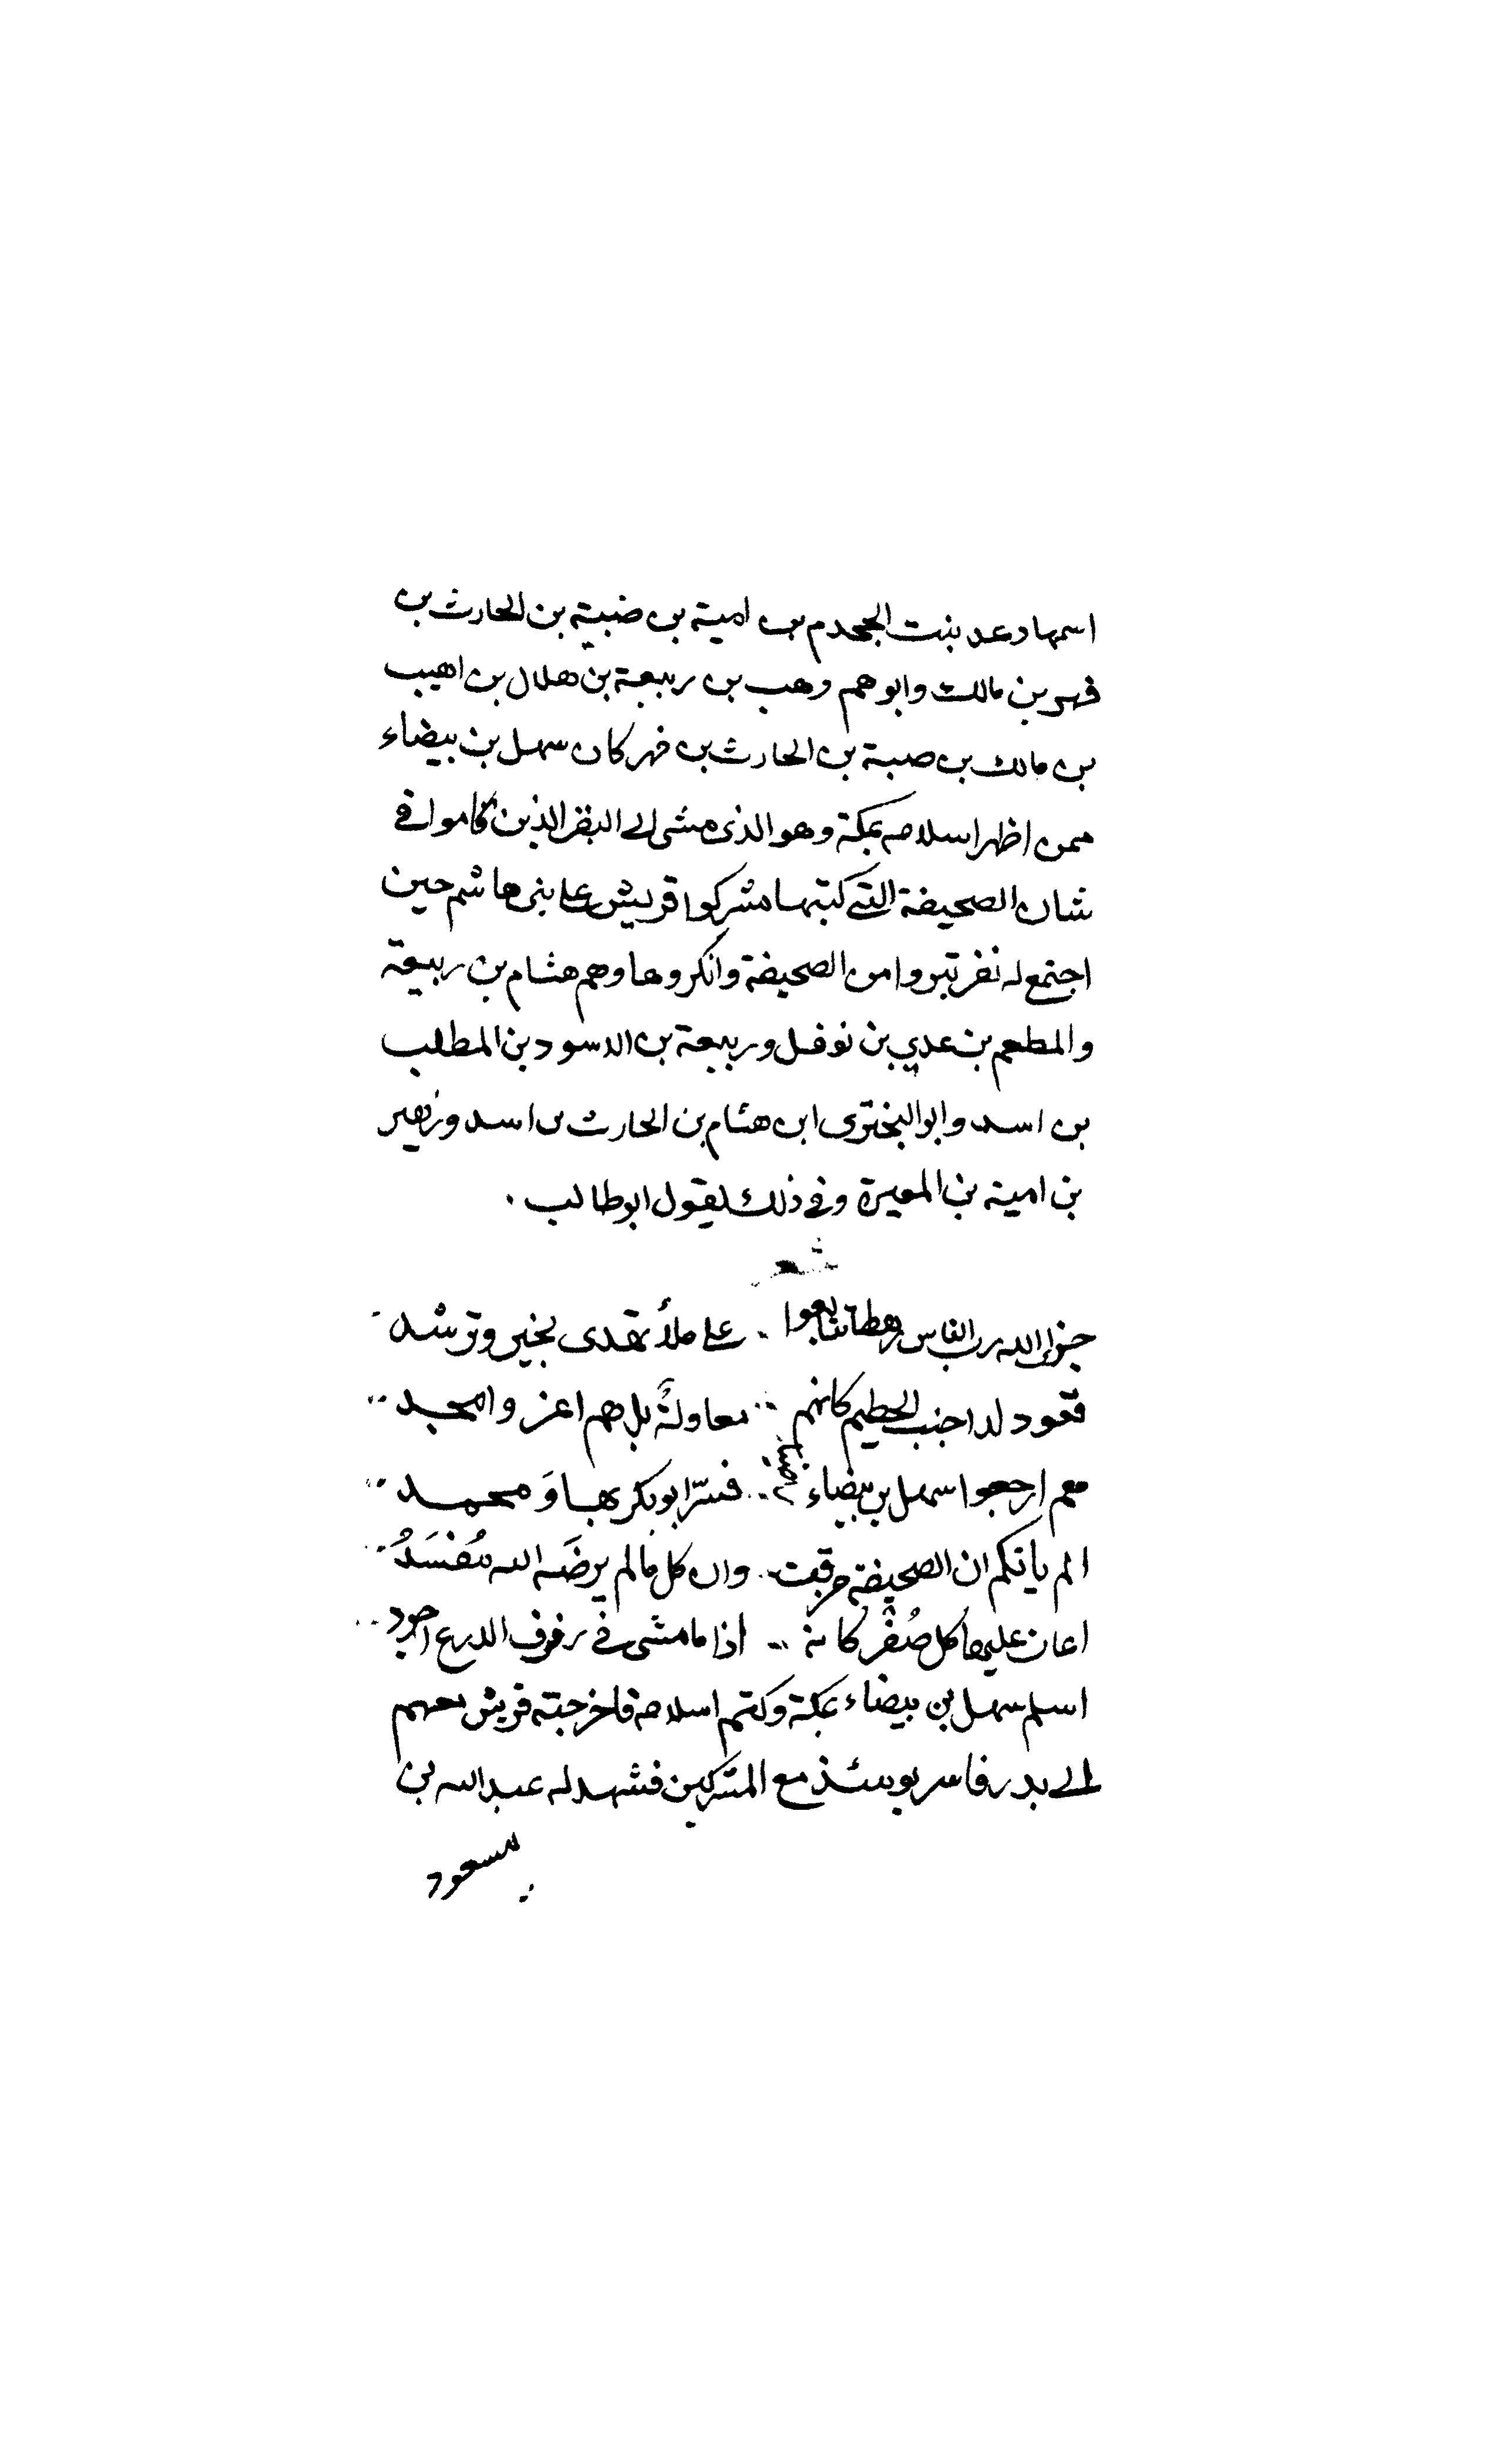 اسمها دعد بنت الجحدم بن امية بن ضبية بن الحارث بن
فهر بن مالك وابوهم وهب بن ربيعة بن هلال بن اهيب
بن مالك بن صبة بن الحارث بن فهر كان سهل بن بيضاء
ممن اظهر اسلامه بمكة وهو الذى مشى الى النفر الذين قاموا فى
شان الصحيفة التى كتبها مشركوا قريش على بنى هاشم حين
اجتمع له نفر تبروا من الصحيفة وانكروها وهم هشام بن ربيعة
والمطعم بن عدي بن نوفل وربيعة بن الاسود بن المطلب
بن اسد وابو البخترى ابن هشام بن الحارث بن اسد وزهير
بن امية بن المغيرة وفى ذلك يقول ابو طالب .
شعر
جزى الله رب الناس رهطا تتابعوا .. على ملأ تهدى بخير وترشد
قعود لدا جنب الحطيم كانهم .. معاولة بل هم اعز وامجد
هم ارجعوا سهل بن بيضاء .. فسرّ ابو بكر بها وَ محمد
الم ياتكم ان الصحيفة مزقت .. وان كل مالم يرضَه الله مُفسَدُ
اعان عليها كل صُقر كانه .. اذا ما مشى فى رفرف الدرع احرد
اسلم سهل بن بيضاء بمكة وكتم اسلامه فاخرجته قريش معهم
الى بدر فاسر يومئذ مع المشركين فشهد له عبد الله بن
مسعود